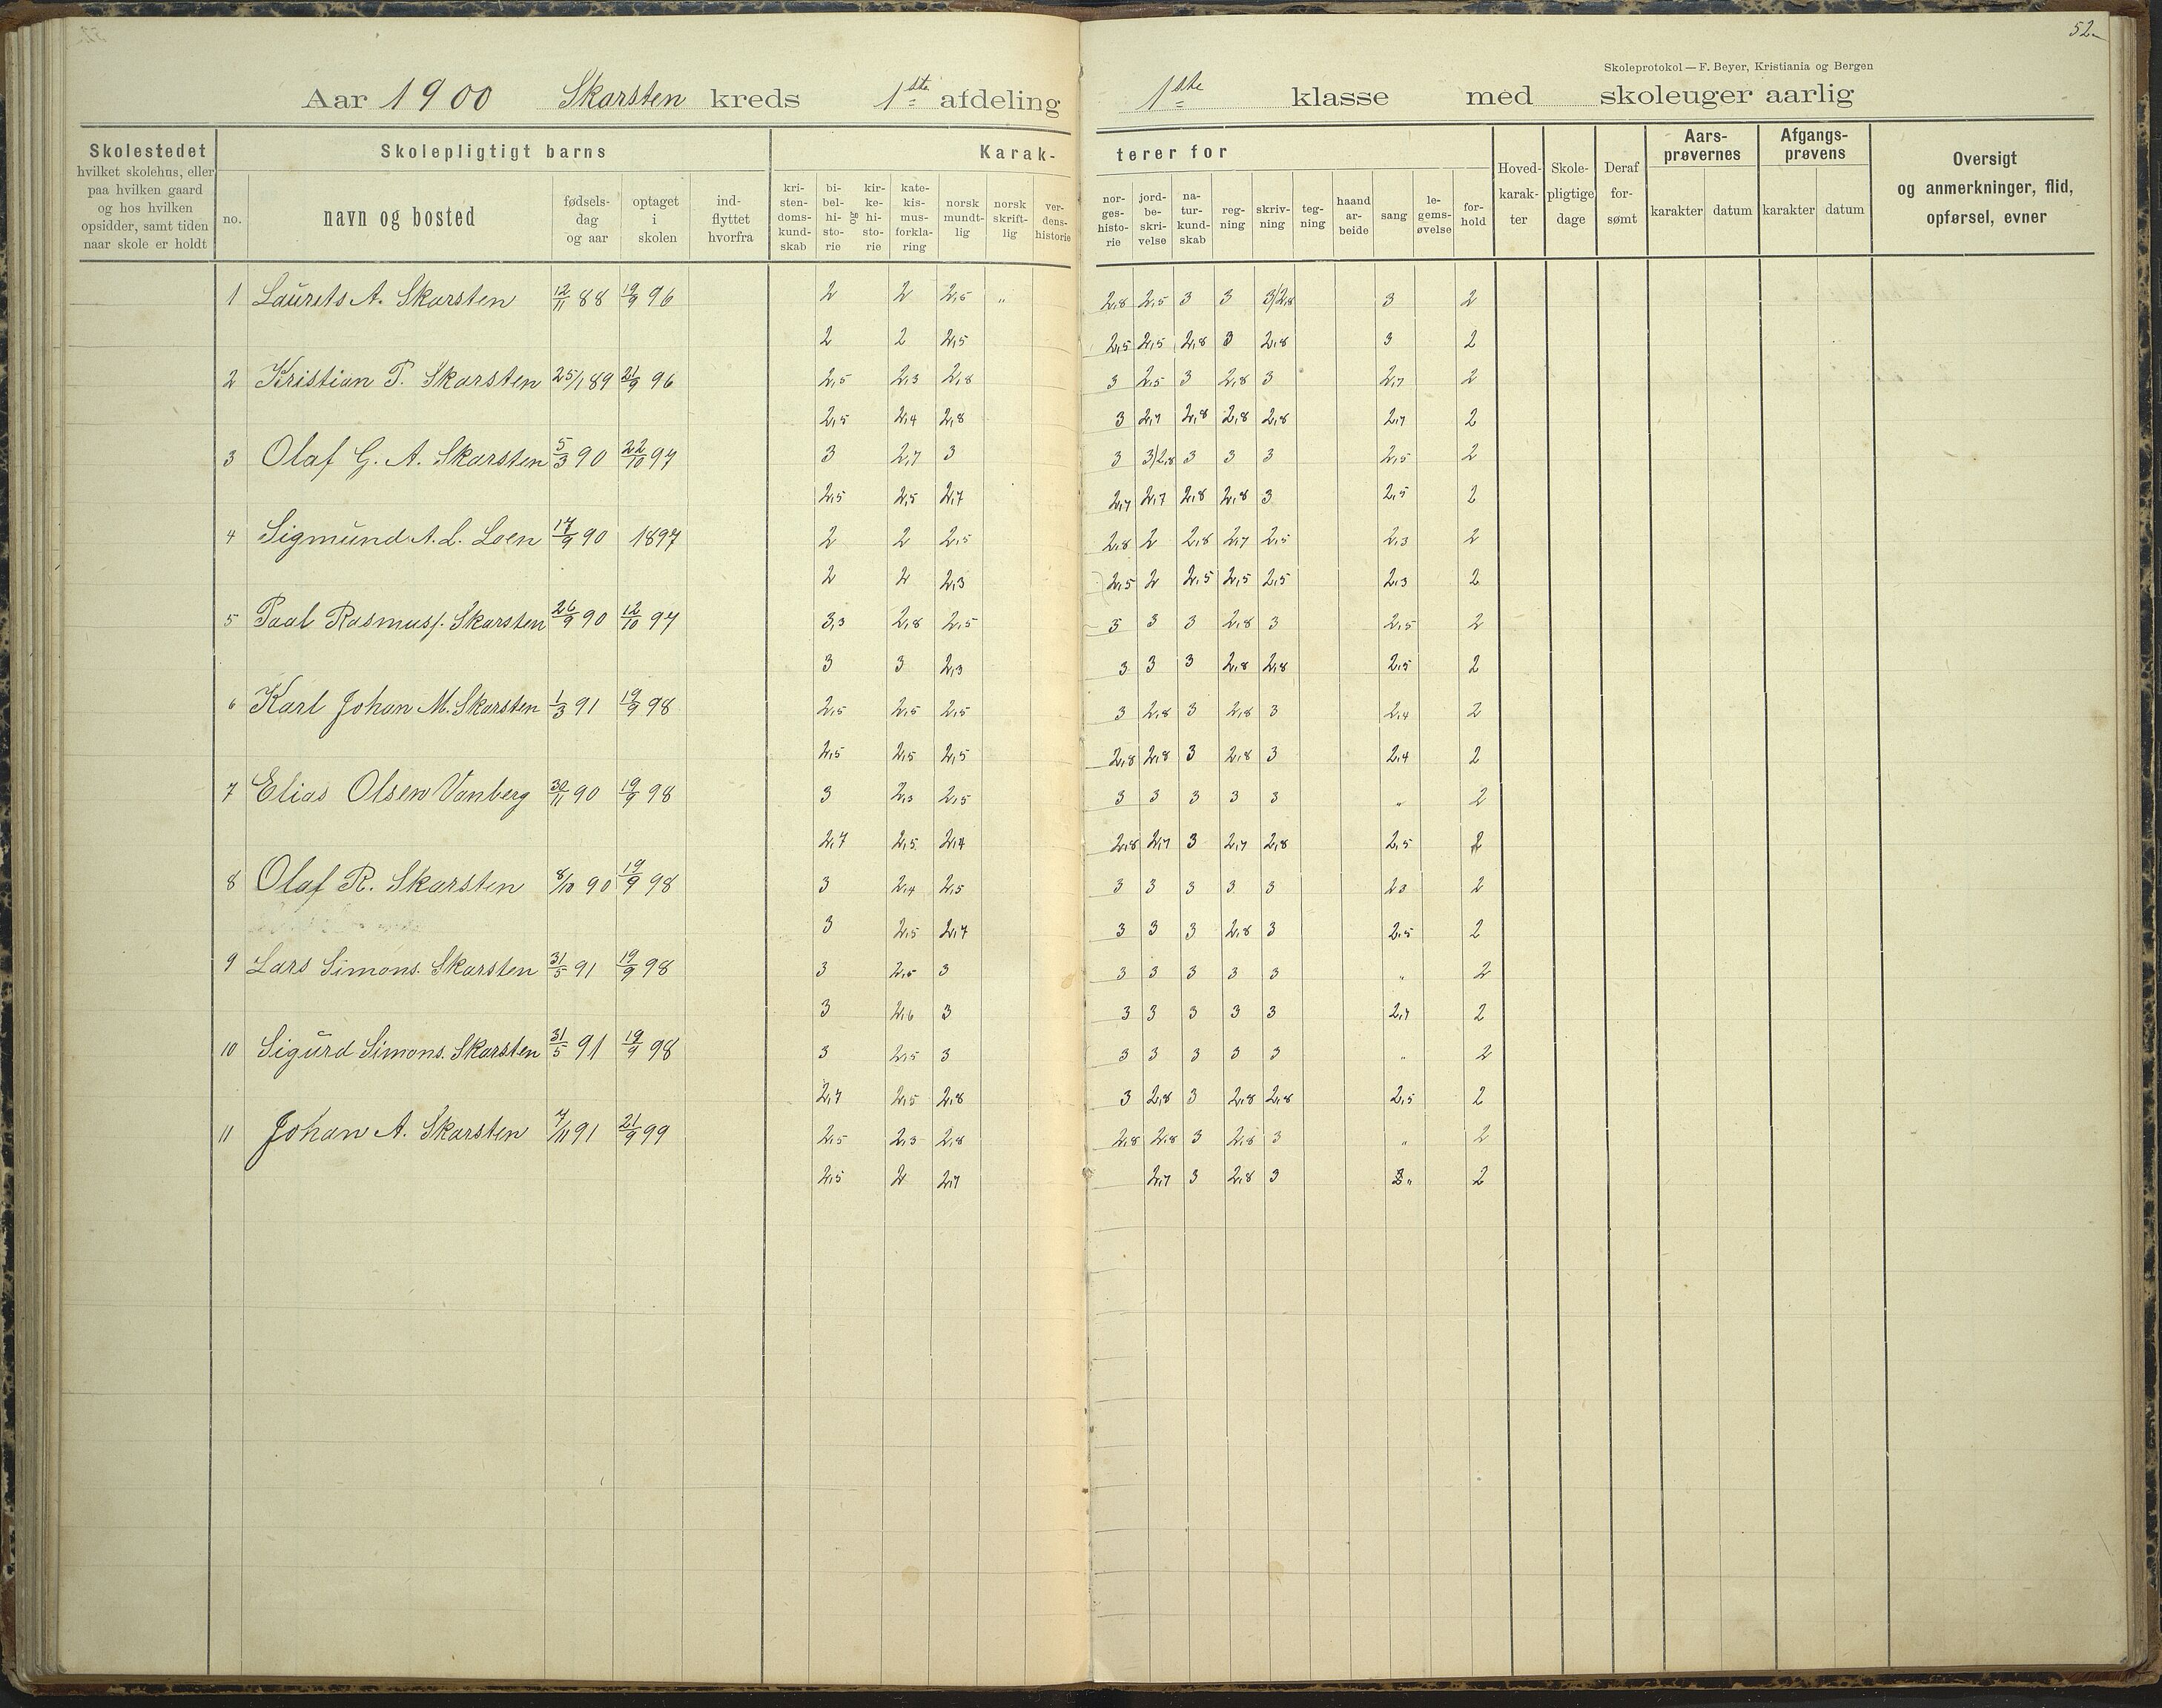 52
Skoleprotokol — F. Beyer, Kristiania og Bergen
Aar 1900 Skarsten kreds 1ste afdeling 1ste klasse med skoleuger aarlig
Skolestedet hvilket skolehus, eller paa hvilken gaard og hos hvilken opsidder, samt tiden naar skole er holdt
Skolepligtigt barns
no. navn og bosted fødsels-dag og aar optaget i skolen ind-flyttet hvorfra
Karak-terer for
kri-sten-doms-kund-skab bi-bel-hi-sto-rie og kir-ke-hi-sto-rie kate-kis-mus-forkla-ring norsk mundt-lig norsk skrift-lig ver-dens-historie nor-ges-histo-rie jord-be-skri-velse na-tur-kund-skab reg-ning skriv-ning teg-ning haand ar-beide sang le-gems-øvelse for-hold
Hoved-karak-ter Skole-pligtige dage Deraf for-sømt
Aars-prøvernes karakter datum
Afgangs-prøvens karakter datum
Oversigt og anmerkninger, flid, opførsel, evner
1 Laurits A. Skarsten 12/11 88 19/9 96 2 2 2,5 „ 2,8 2,5 3 3 3/2,8 3 2
2 2 2,5 2,5 2,5 2,8 3 2,8 3 2
2 Kristian P. Skarsten 25/1 89 21/9 96 2,5 2,3 2,8 3 2,5 3 2,8 3 2,7 2
2,5 2,4 2,8 3 2,7 2,8 2,8 2,8 2,7 2
3 Olaf G. A. Skarsten 5/3 90 22/10 97 3 2,7 3 3 3/2,8 3 3 3 2,5 2
2,5 2,5 2,7 2,7 2,7 2,8 2,8 3 2,5 2
4 Sigmund A. L. Loen 17/9 90 1897 2 2 2,5 2,8 2 2,8 2,7 2,5 2,3 2
2 2 2,3 2,5 2 2,5 2,5 2,5 2,3 2
5 Paal Rasmuss. Skarsten 26/9 90 12/10 97 3,3 2,8 2,5 3 3 3 2,8 3 2,5 2
3 3 2,3 3 3 3 2,8 2,8 2,5 2
6 Karl Johan M. Skarsten 1/3 91 19/9 98 2,5 2,5 2,5 3 2,8 3 2,8 3 2,4 2
2,5 2,5 2,5 2,8 2,8 3 2,8 3 2,4 2
7 Elias Olsen Vanberg 30/11 90 19/9 98 3 2,3 2,5 3 3 3 3 3 „ 2
2,7 2,5 2,4 2,8 2,7 3 2,7 2,8 2,5 2
8 Olaf R. Skarsten 8/10 90 19/9 98 3 2,4 2,5 3 3 3 3 3 2,3 2
3 2,5 2,7 3 3 3 2,8 3 2,5 2
9 Lars Simons. Skarsten 31/5 91 19/9 98 3 2,5 3 3 3 3 3 3 „ 2
3 2,6 3 3 3 3 3 3 2,7 2
10 Sigurd Simons. Skarsten 31/5 91 19/9 98 3 2,5 3 3 3 3 3 3 „ 2
2,7 2,5 2,8 3 2,8 3 2,8 2,8 2,5 2
11 Johan A. Skarsten 7/11 91 21/9 99 2,5 2,3 2,8 2,8 2,8 3 2,8 3 „ 2
2,5 2 2,7 2,7 3 2,8 3 „ 2